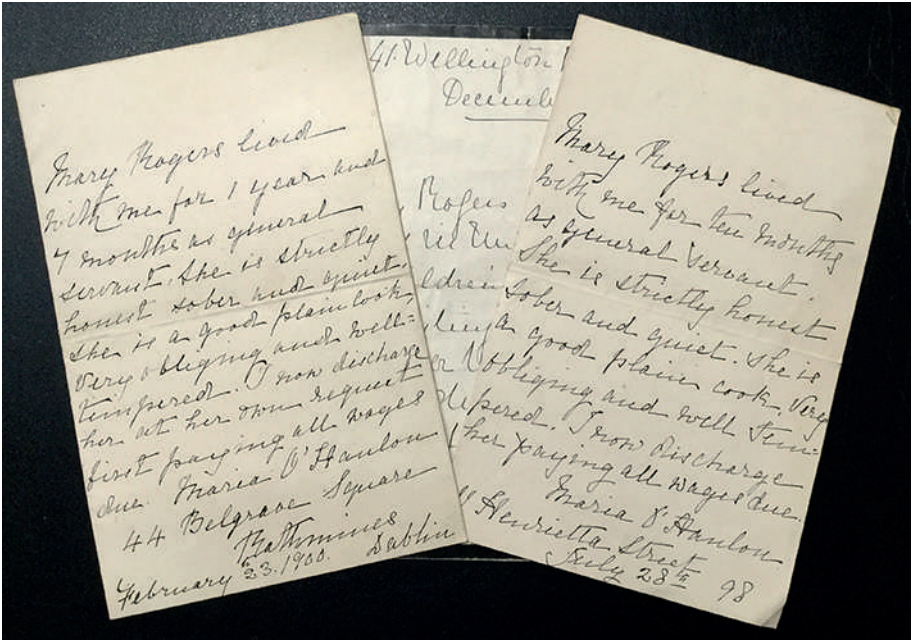 Mary Rogers lived
with me for 1 year and
7 months as general
servant. She is strictly
honest sober and quiet.
She is a good plain cook
very obliging and well=
tempered. I now discharge
her at her own request
first paying all wages
due. Maria O'Hanlon
44 Belgrave Square
Rathmines
February 23. 1900. Dublin
41. Wellington
Decemb
Rogers
ldren
Mary Rogers lived
with me for ten months
as general servant.
She is strictly honest
sober and quiet. She is
a good plain cook, very
obliging and well tem=
pered. I now discharge
her paying all wages due.
Maria O'Hanlon
Henrietta Street
July 28th 98